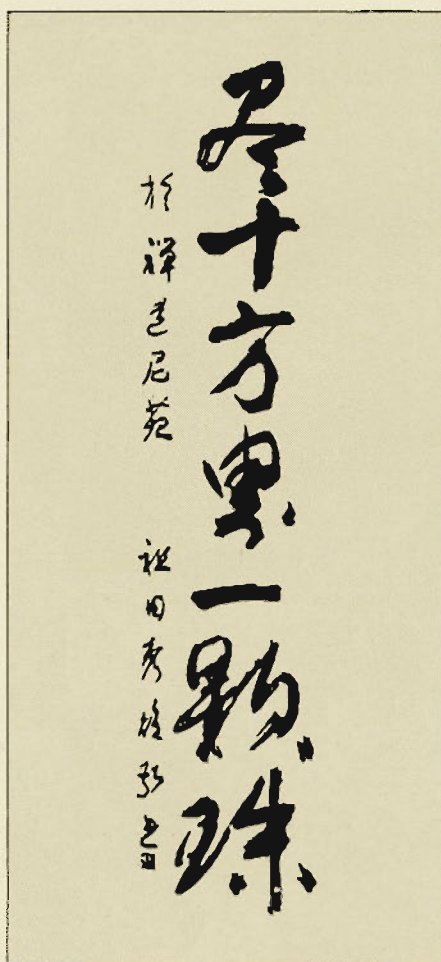 尽十方界一顆珠
於禅道尼苑　祖田秀敬書